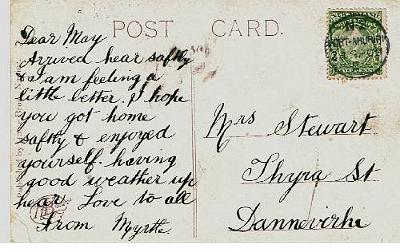 POST CARD.
Dear May
Arrived hear saftly
& I am feeling a
little better. I hope
you got home
saftly & enjoyed
yourself. having
good weather up
hear. Love to all
From Myrtle.
Mrs Stewart
Thyra St
Dannevirke